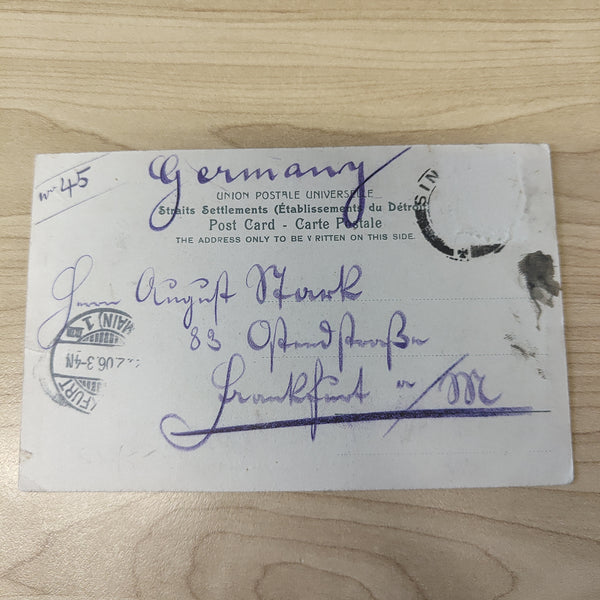 No 45
Germany
UNION POSTALE UNIVERSELLE
Straits Settlements (Établissements du Détroi
Post Card - Carte Postale
THE ADDRESS ONLY TO BE WRITTEN ON THIS SIDE.
SIN
Herrn August Stark
83 Ostendstraße
Frankfurt a/M
KFURT (MAIN) 1
2.06.3-4N